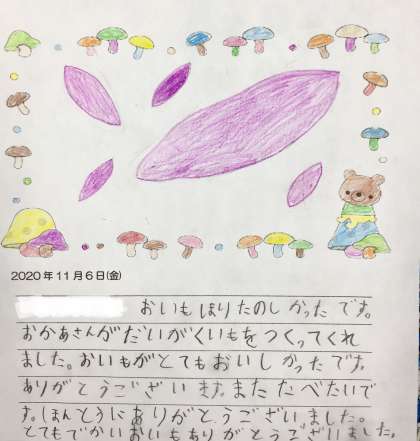 2020年11月6日(金)
おいもほりたのしかったです。
おかあさんがだいがくいもをつくってくれ
ました。おいもがとてもおいしかったです。
ありがとうございます。またたべたいで
す。ほんとうにありがとうございました。
とてもでかいおいもありがとうございました。